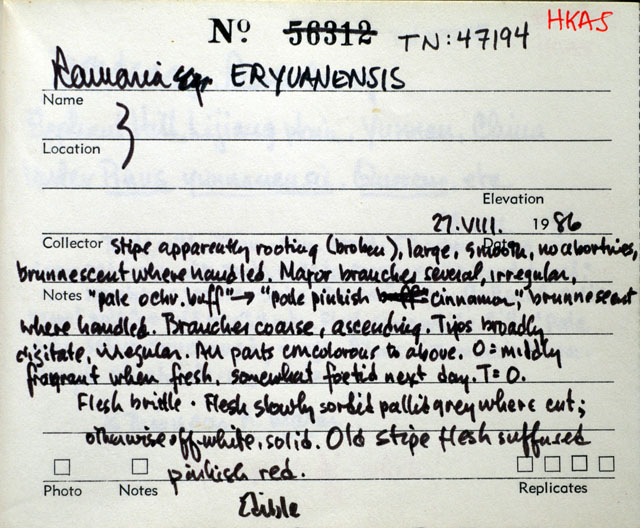 HKAS
Nº 56312 TN: 47194
Ramaria spp ERYUANENSIS
Name
Location
Elevation
27.VIII. 1986
Date
Collector Stipe apparently rooting (broken), large, smooth, no abortives,
brunnescent where handled. Major branches several, irregular,
Notes "pale ochr. buff" → "pale pinkish buff cinnamon," brunnescent
where handled. Branches coarse, ascending. Tips broadly
digitate, irregular. All parts concolorous to above. O = mildly
fragrant when fresh, somewhat foetid next day. T = O.
Flesh brittle. Flesh slowly sordid pallid grey where cut;
otherwise off-white, solid. Old stipe flesh suffused
pinkish red.
Photo Notes Replicates
Edible